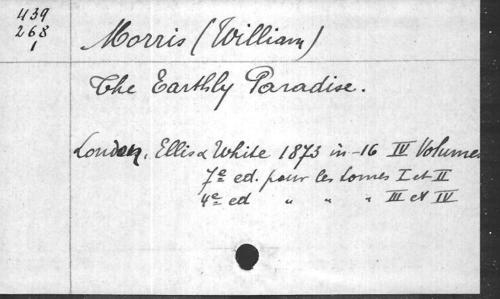 439
268
1
Morris (William)
The Earthly Paradise.
London, Ellis & White 1873 in-16 IV Volumes
7e ed. pour les tomes I et II
4e ed " " " III et IV